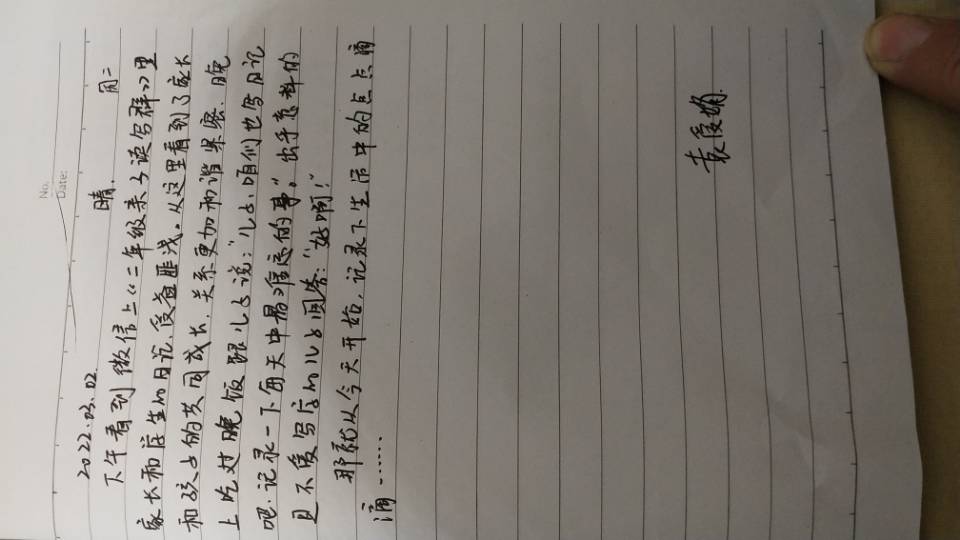 No:
Date:
2022.03.02 晴. 周二
下午看到微信上《二年级亲子读写群》里
家长和学生的日记,受益匪浅。从这里看到了家长
和孩子的共同成长,关系更加和谐紧密.晚
上吃过晚饭跟儿子说:"儿子,咱们也写日记
吧.记录一下每天中最难忘的事。"出乎意料的
是不爱写字的儿子回答:"好啊!"
那就从今天开始,记录下生活中的点点滴
滴……
袁爱娟.